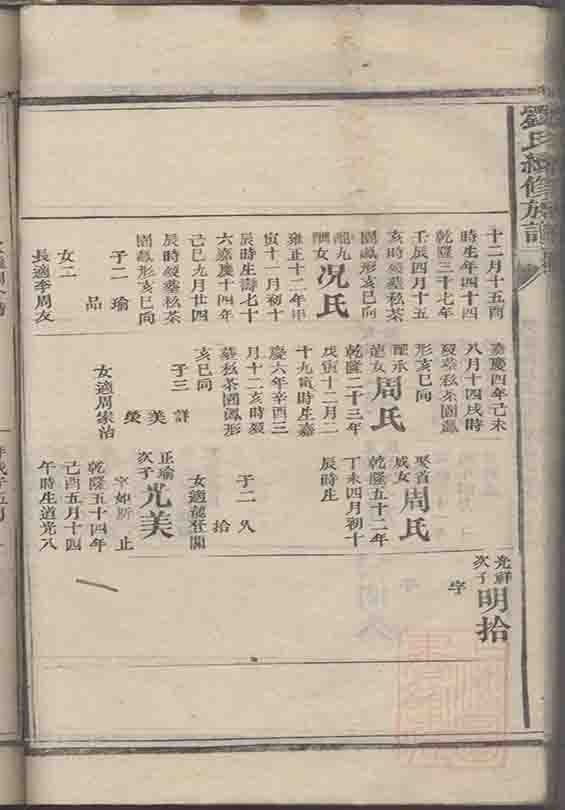 劉氏續修族譜
十二月十五酉
時生年四十四
乾隆三十七年
壬辰四月十五
亥時歿墓秋茶
園鳳形亥巳向
龍九
女况氏
雍正十二年甲
寅十一月初十
辰時生壽七十
六嘉慶十四年
己巳九月廿四
辰時歿墓秋茶
園鳳形亥巳向
子二 瑜
品
女二
長適李周友
嘉慶四年己未
八月十四戌時
歿墓秋茶園鳳
形亥巳向
配承
龍女周氏
乾隆二十三年
戊寅十二月二
十九寅時生嘉
慶六年辛酉三
月十二亥時歿
墓秋茶園鳳形
亥巳向
子三 詳
美
榮
女適周家治
娶首
成女周氏
乾隆五十二年
丁未四月初十
辰時生
子二 久
拾
女適龍登開
正瑜
次子光美
字 止
乾隆五十四年
己酉五月十四
午時生道光八
光詳
次子明拾
字